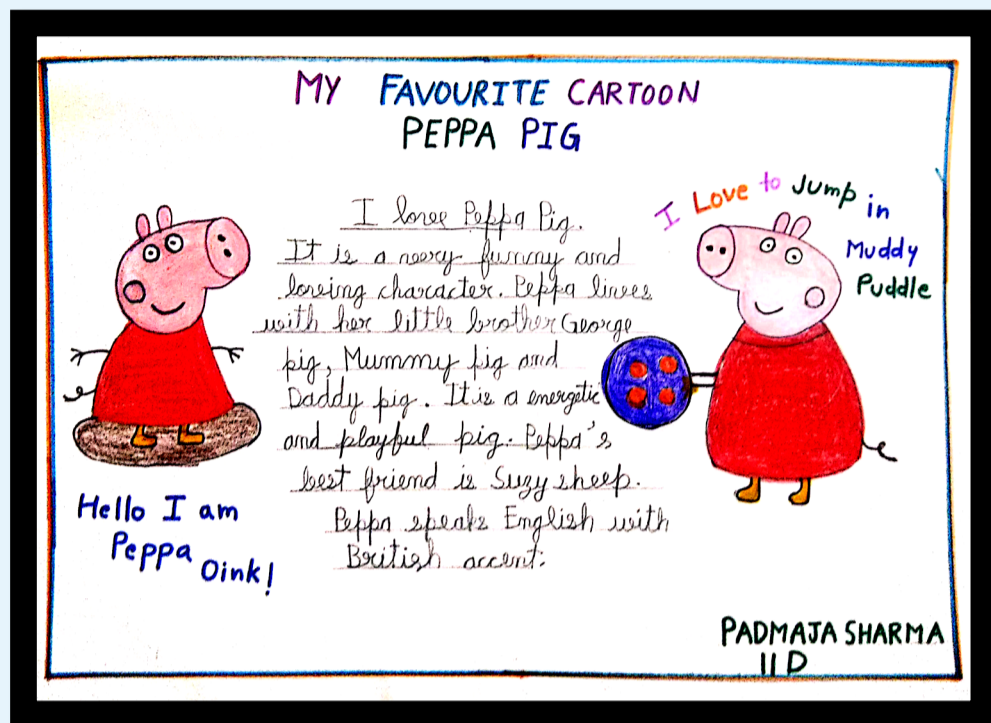 MY FAVOURITE CARTOON
PEPPA PIG
I love Peppa Pig.
It is a very funny and
loveing character. Peppa lives
with her little brother George
pig, Mummy pig and
Daddy pig. It is a energetic
and playful pig. Peppa's
best friend is Suzy sheep.
Peppa speaks English with
British accent.
I Love to Jump in
Muddy
Puddle
Hello I am
Peppa
Oink!
PADMAJA SHARMA
II D